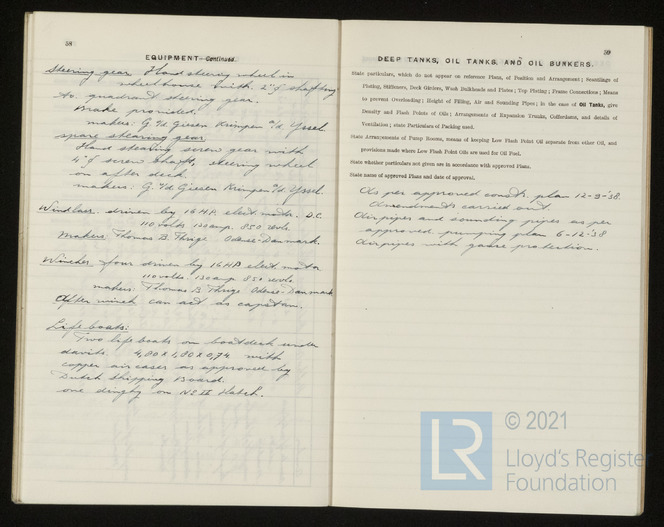 58
EQUIPMENT—Continued.
Steering gear. Hand steering wheel in
wheelhouse with 2" ф shafting
to quadrant steering gear.
Brake provided.
makers: G. v/d Giesen Krimpen a/d Yssel.
spare steering gear.
Hand steering screw gear with
4" ф screw shafts, steering wheel
on after deck.
makers: G. v/d Giesen Krimpen a/d Yssel
Windlass. driven by 16 H.P. elect. motor. D.C.
110 volts 130 amp. 850 revs.
Makers Thomas B. Thrige Odense-Danmark.
Winches four driven by 16 HP elect motor
110 volts. 130 amp 850 revs.
makers: Thomas B. Thrige Odense-Danmark
After winch can act as capstan.
Lifeboats:
Two life boats on boatdeck under
davits. 4,80 x 1,80 x 0,74 with
copper aircases as approved by
Dutch Shipping Board.
one dinghy on No II Hatch.
59
DEEP TANKS, OIL TANKS, AND OIL BUNKERS.
State particulars, which do not appear on reference Plans, of Position and Arrangement; Scantlings of
Plating, Stiffeners, Deck Girders, Wash Bulkheads and Plates; Top Plating; Frame Connections; Means
to prevent Overloading; Height of Filling, Air and Sounding Pipes; in the case of Oil Tanks, give
Density and Flash Points of Oils; Arrangements of Expansion Trunks, Cofferdams, and details of
Ventilation; state Particulars of Packing used.
State Arrangements of Pump Rooms, means of keeping Low Flash Point Oil separate from other Oil, and
provisions made where Low Flash Point Oils are used for Oil Fuel.
State whether particulars not given are in accordance with approved Plans.
State name of approved Plans and date of approval.
As per approved constr. plan 12-9-'38.
Amendments carried out.
Airpipes and sounding pipes as per
approved pumping plan 6-12-38
Airpipes with gauze protection.
LR
© 2021
Lloyd's Register
Foundation